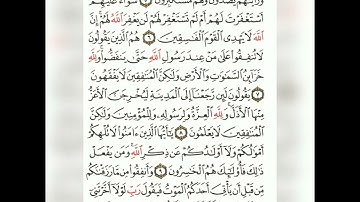 ورأيتهم يصدون وهم مستكبرون ٥ سواء عليهم
أستغفرت لهم أم لم تستغفر لهم لن يغفر الله لهم إن
الله لا يهدي القوم الفاسقين ٦ هم الذين يقولون
لا تنفقوا على من عند رسول الله حتى ينفضوا ولله
خزائن السموات والأرض ولكن المنافقين لا يفقهون
٧ يقولون لئن رجعنا إلى المدينة ليخرجن الأعز
منها الأذل ولله العزة ولرسوله وللمؤمنين ولكن
المنافقين لا يعلمون ٨ يأيها الذين ءامنوا لا تلهكم
أموالكم ولا أولادكم عن ذكر الله ومن يفعل
ذلك فأولئك هم الخاسرون ٩ وأنفقوا من ما رزقنكم
من قبل أن يأتي أحدكم الموت فيقول رب لولا أخرتني